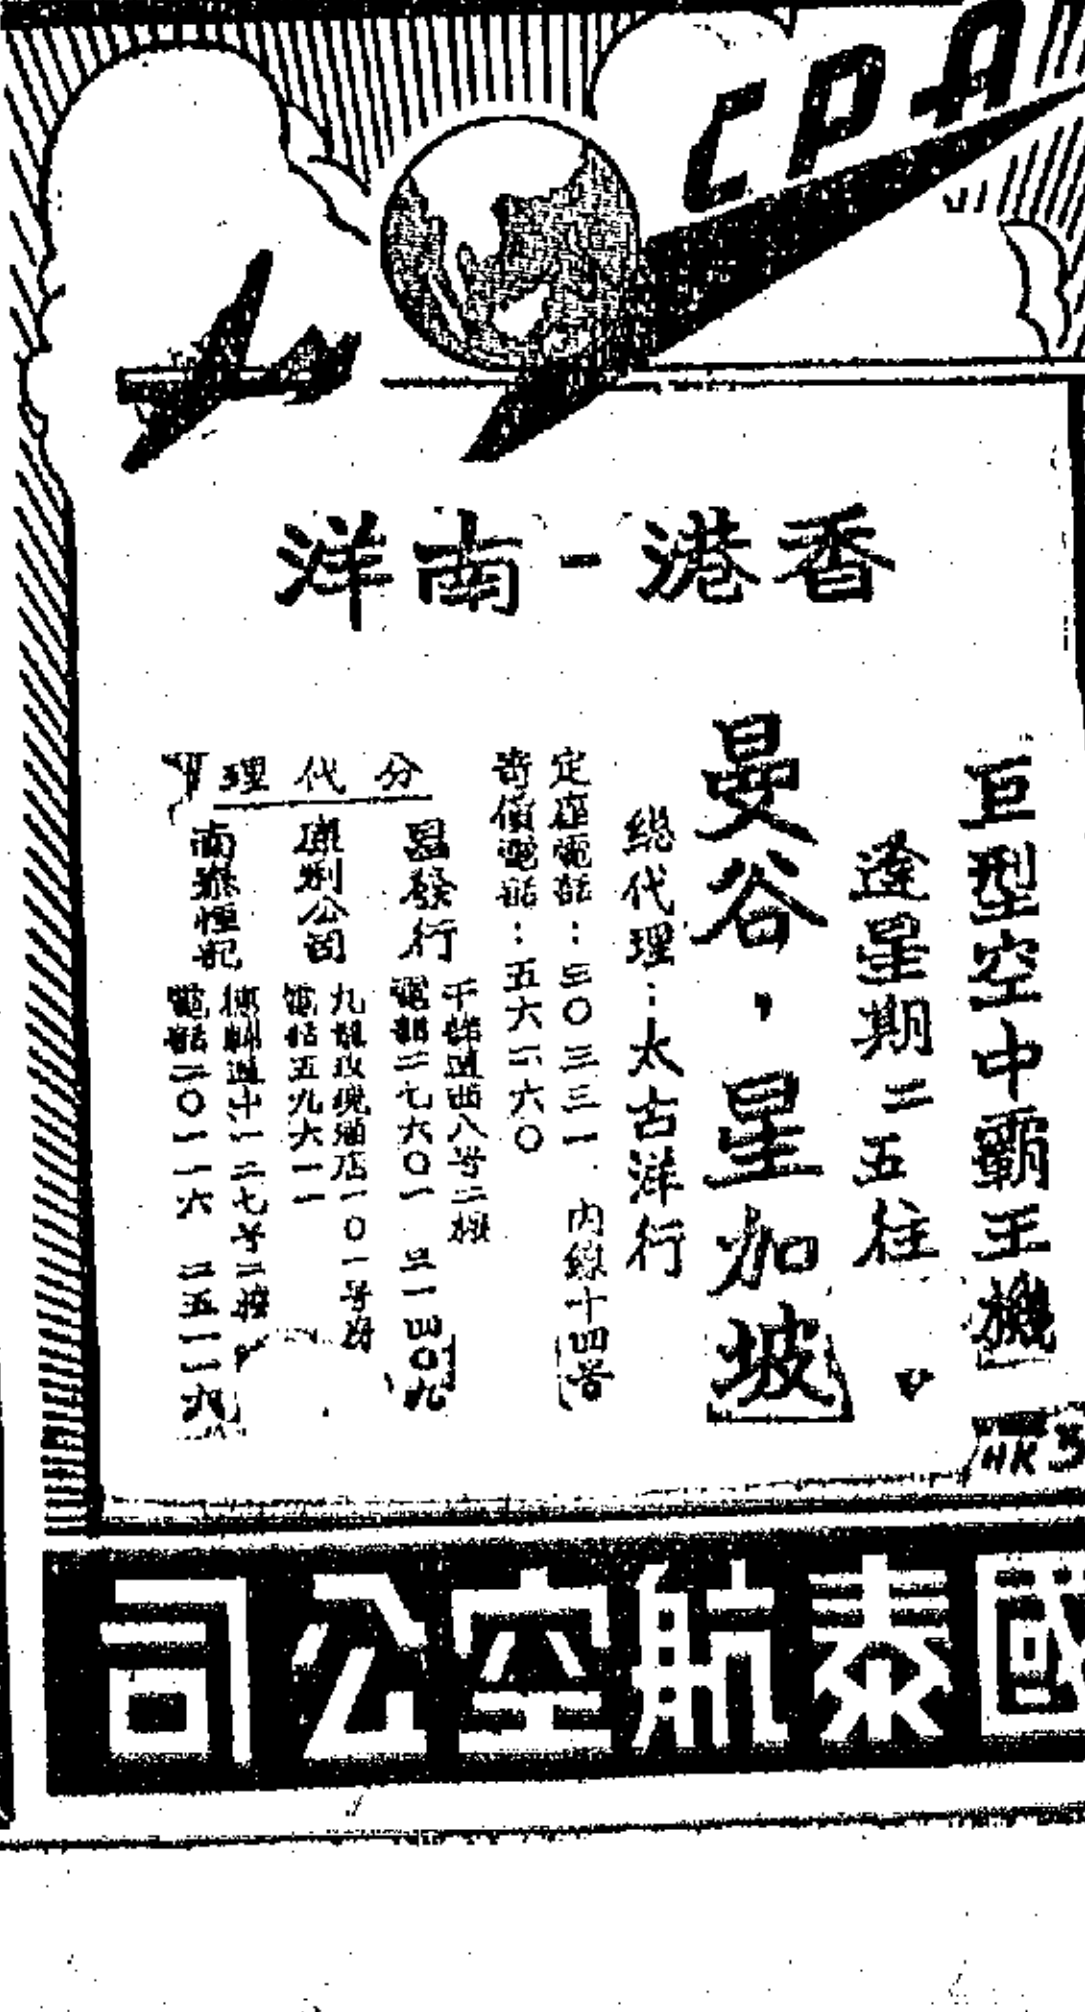 CPA
香港-南洋
巨型空中霸王機
逢星期二五往
曼谷，星加坡
總代理：太古洋行
定座電話：三〇三三一 內線十四號
寄價電話：五六二六〇
分代理
昌發行
干諾道西八号二樓
電話二七六〇一 三一四〇九
康利公司
九龍玫瑰酒店一〇一号房
電話五九六一一
德輔道中一二七号二樓
電話二〇一一六 二五一一六
HK
國泰航空公司